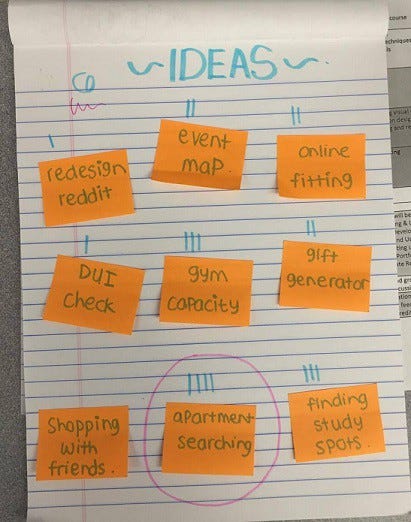 ~IDEAS~.
redesign
reddit
event
map.
online
fitting
DUI
check
gym
capacity
gift
generator
Shopping
with
friends.
apartment
searching
finding
study
spots.